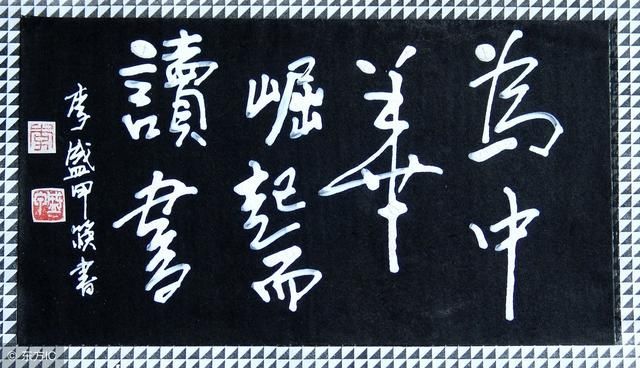 為中
華
崛起而
讀書
李盛甲書
© 东方IC